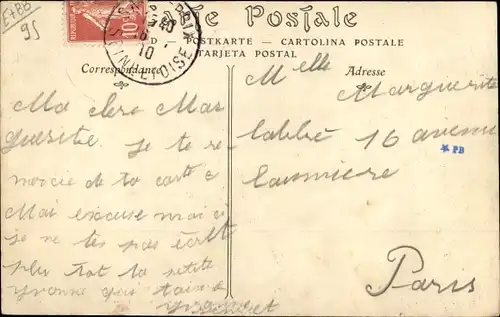 E+BB
95
10
Carte Postale
POSTKARTE - CARTOLINA POSTALE
TARJETA POSTAL
Correspondance
Adresse
Ma chere Mar
guerite. Je te re
mercie de ta carte
Mai excuse moi si
je ne tes pas écrit
plu tot ta petite
Yvonne qui
Melle
Marguerite
Labbé 16 avenue
Laumiere
* PB
Paris